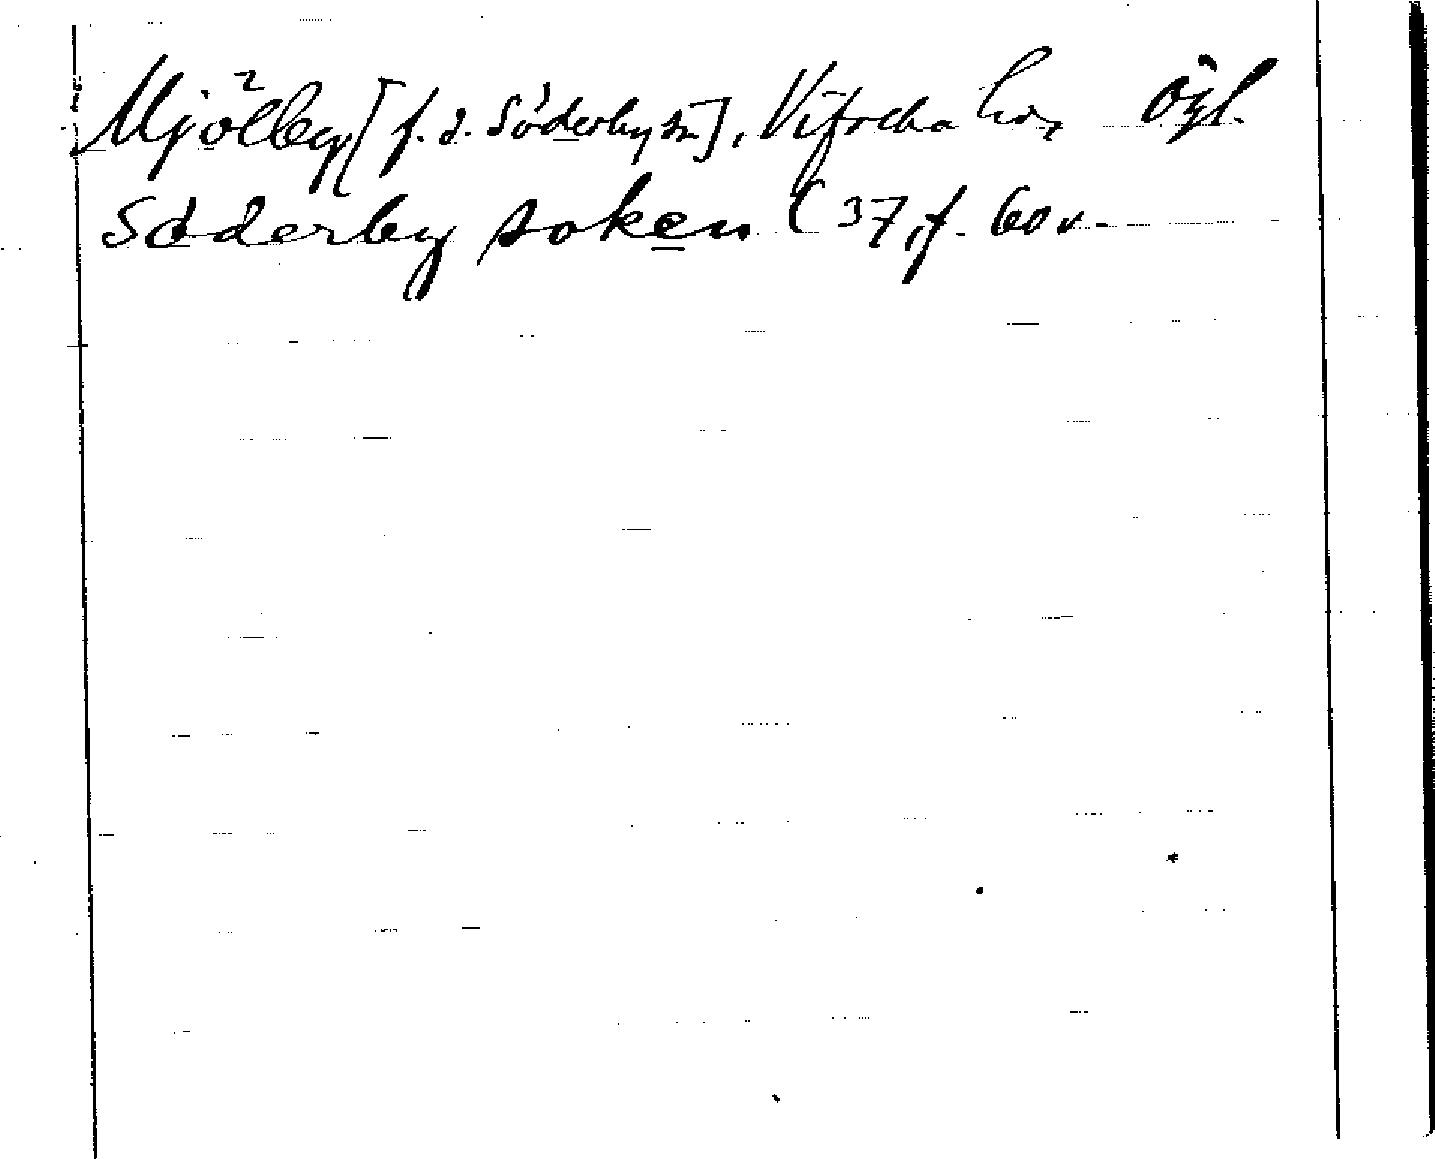 Mjölby [f. d. Söderby sn], Vifolka hd, Ögl.
Söderby soken (37, f. 60 v.